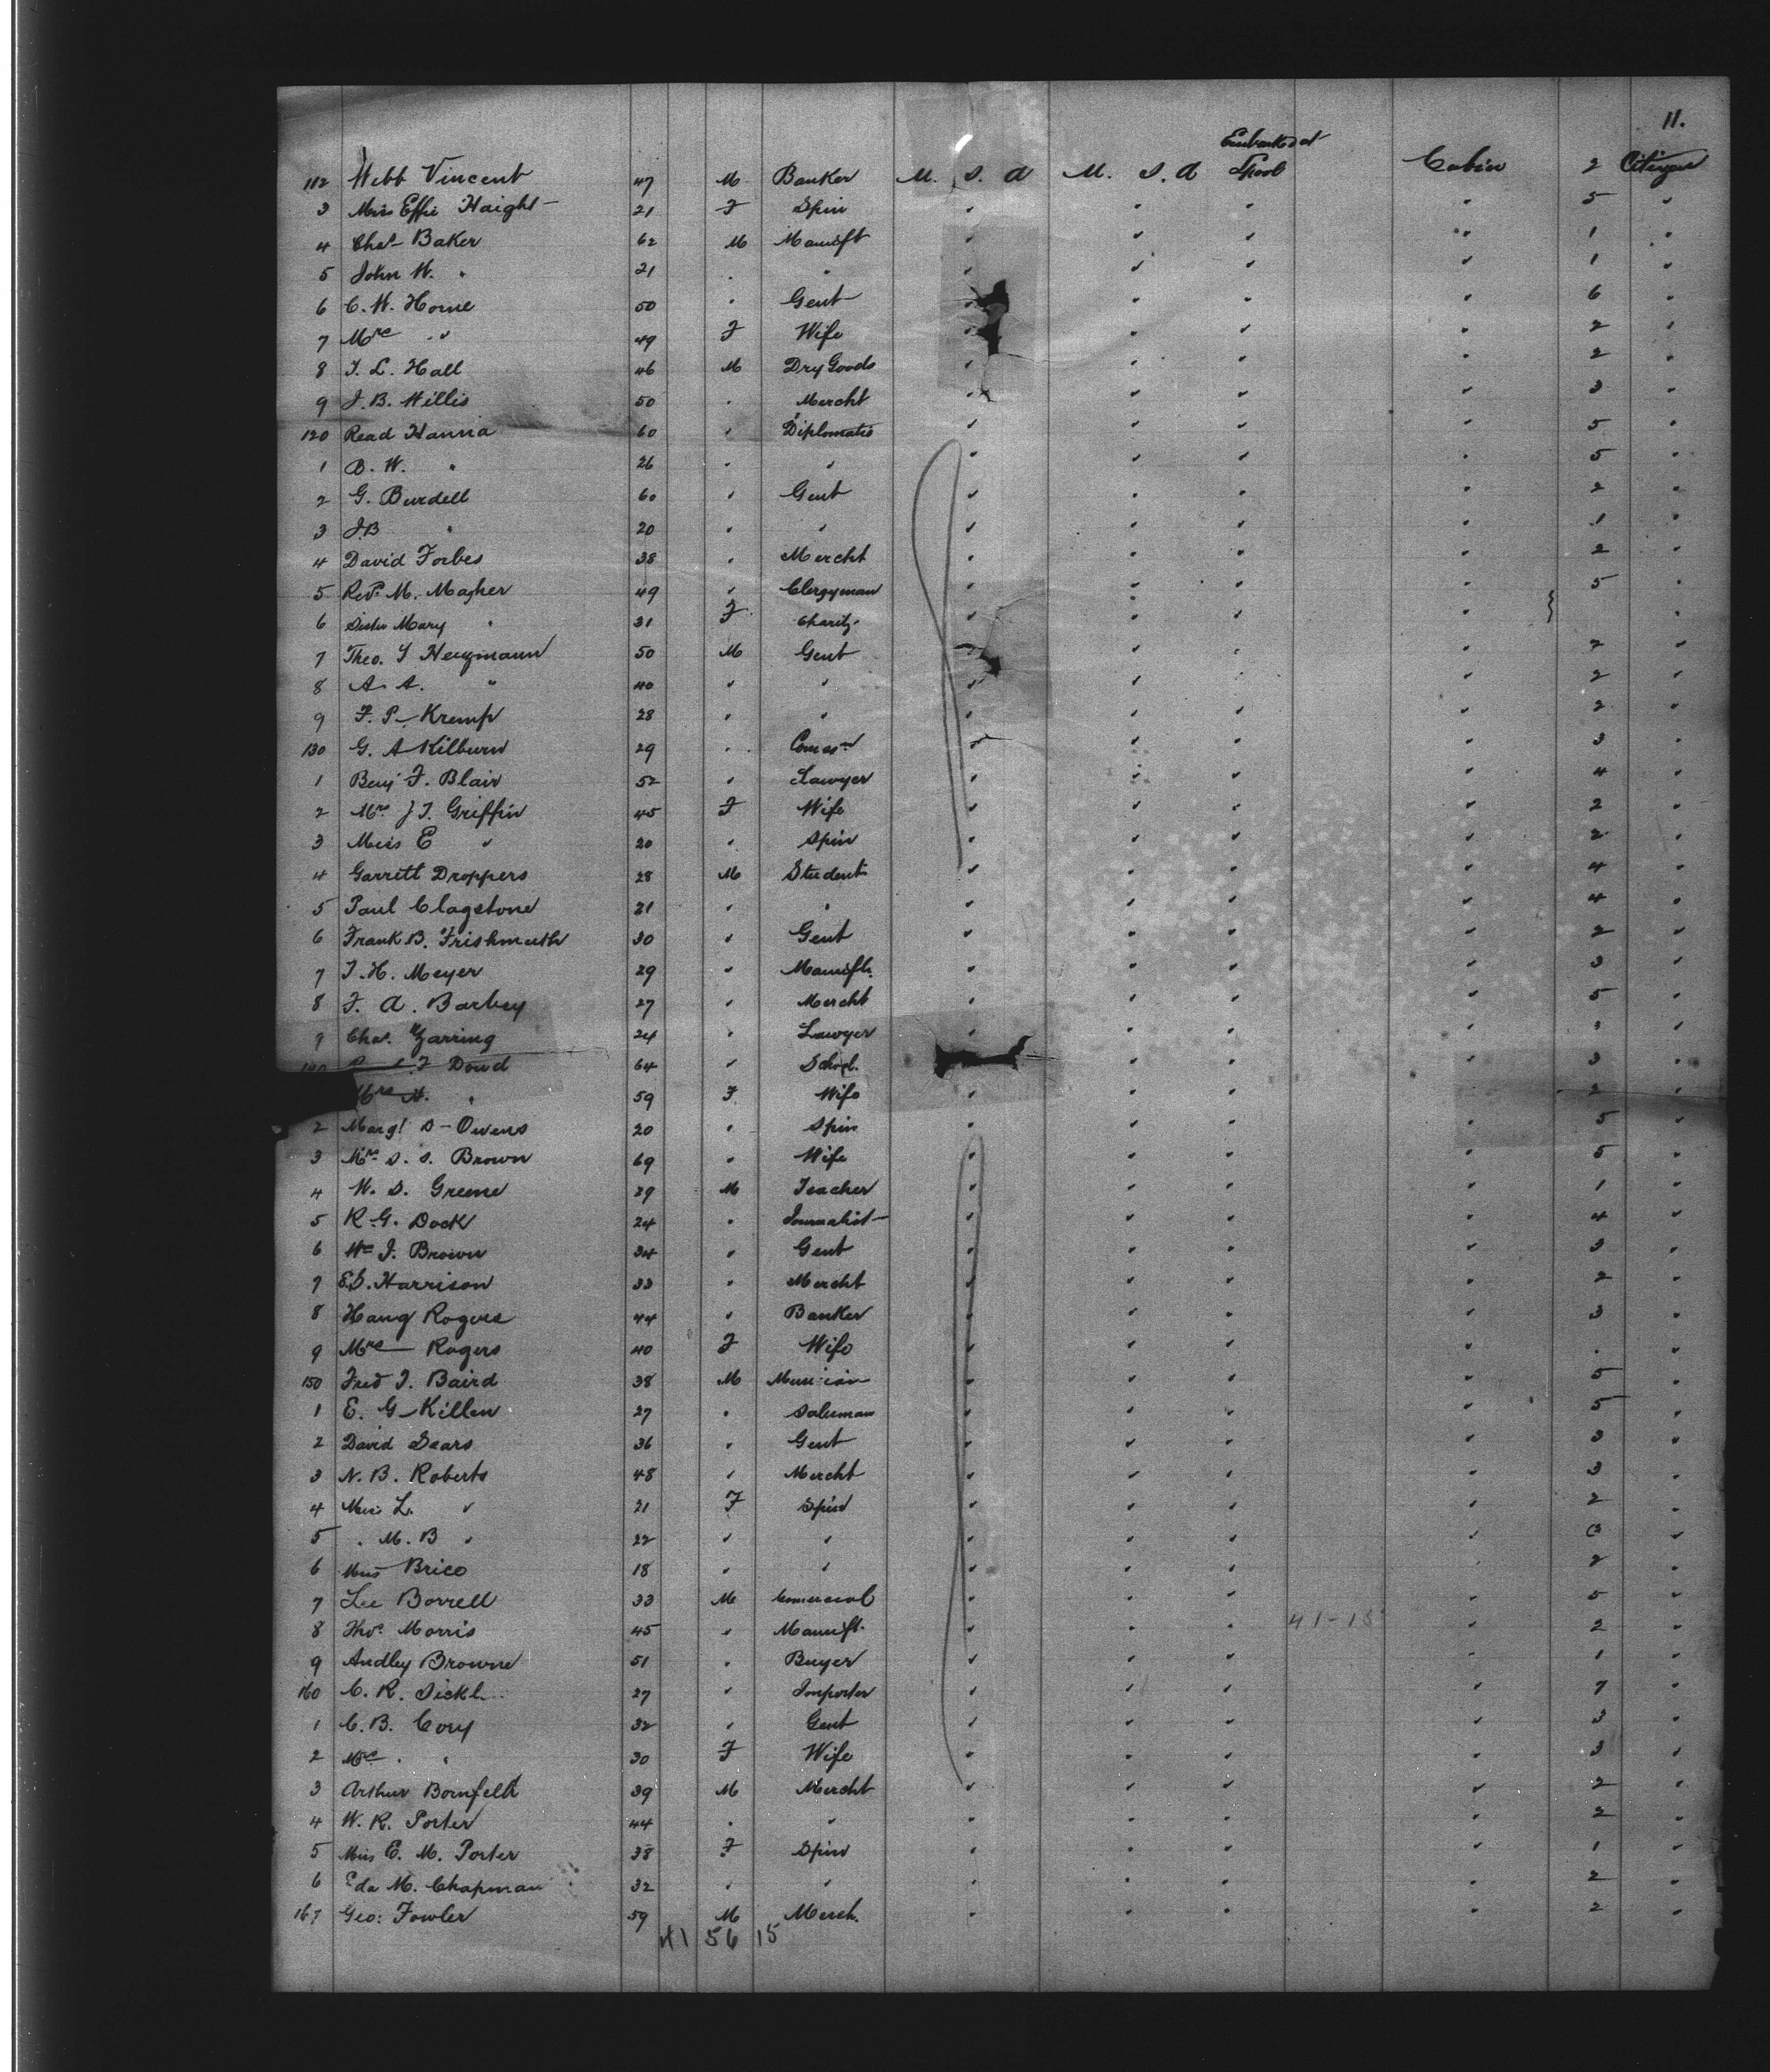 11.
Embarked at
112 Webb Vincent 47 M Banker U. S. A U. S. A Lpool Cabin 2 Citizen
3 Miss Effie Haight 21 F Spin " " " " 5 "
4 Chas Baker 62 M Manuft " " " " 1 "
5 John W. " 21 " " " " " " 1 "
6 C. W. Horne 50 " Gent " " " " 6 "
7 Mrs " 49 F Wife " " " " 2 "
8 T. L. Hall 46 M Dry Goods " " " " 2 "
9 J. B. Willis 50 " Mercht " " " " 3 "
120 Read Hanna 60 " Diplomatic " " " " 5 "
1 B. W. " 26 " " " " " " 5 "
2 G. Burdell 60 " Gent " " " " 2 "
3 J.B " 20 " " " " " " 1 "
4 David Forbes 38 " Mercht " " " " 2 "
5 Revd. M. Magher 49 " Clergyman " " " " 5 "
6 Sister Mary " 31 F Charity " " " " "
7 Theo. Heugmann 50 M Gent " " " 2 "
8 A. A. " 40 " " " " " " 2 "
9 F. P. Kremp 28 " " " " " " 2 "
130 G. A Kilburn 29 " " " " " 3 "
1 Benj F. Blair 52 " Lawyer " " " " 4 "
2 Mrs J T. Griffin 45 F Wife " " " " 2 "
3 Miss E " 20 " Spin " " " " 2 "
4 Garrett Droppers 28 M Student " " " " 4 "
5 Paul Clagstone 21 " " " " " " 4 "
6 Frank B. Frishmuth 30 " Gent " " " " 2 "
7 T. H. Meyer 29 " Manuft. " " " " 3 "
8 F. A. Barbey 27 " Mercht " " " " 5 "
9 Chas. Zarring 24 " Lawyer " " " " " "
Dowd 64 " School. " " " 3 "
Mrs H. " 59 F Wife " " " " 2 "
2 Margt S- Owens 20 " Spin " " " " 5 "
3 Mrs S. S. Brown 69 " Wife " " " " 5 "
4 W. S. Greene 29 M Teacher " " " " 1 "
5 R. G. Dock 24 " Journalist " " " " 4 "
6 Wm J. Brown 34 " Gent " " " " 3 "
7 E.S. Harrison 33 " Mercht " " " " 2 "
8 Rogers 44 " Banker " " " " 3 "
9 Mrs Rogers 40 F Wife " " " " " "
150 Fred T. Baird 38 M Musician " " " " 5 "
1 E. G. Killen 27 " Salesman " " " " 5 "
2 David Sears 36 " Gent " " " " 3 "
3 N. B. Roberts 48 " Mercht " " " " 3 "
4 Miss L. " 21 F Spin " " " " 2 "
5 " M. B " 22 " " " " " " 3 "
6 Miss Brico 18 " " " " " 2 "
7 Lee Borrell 33 M Commercial " " " " 5 "
8 Thos. Morris 45 " Manuft. " " " 41-15 " 2 "
9 Audley Browne 51 " Buyer " " " " 1 "
160 C. R. Sickl 27 " Importer " " " " 7 "
1 C. B. Cory 32 " Gent " " " " 3 "
2 Mrs " 30 F Wife " " " " 3 "
3 Arthur Bornfeld 39 M Mercht " " " " 2 "
4 W. R. Porter 44 " " " " " " 2 "
5 Miss E. M. Porter 38 F Spin " " " " 1 "
6 Eda M. Chapman 32 " " " " " " 2 "
167 Geo: Fowler 59 M Merch. " " " " 2 "
41 56 15